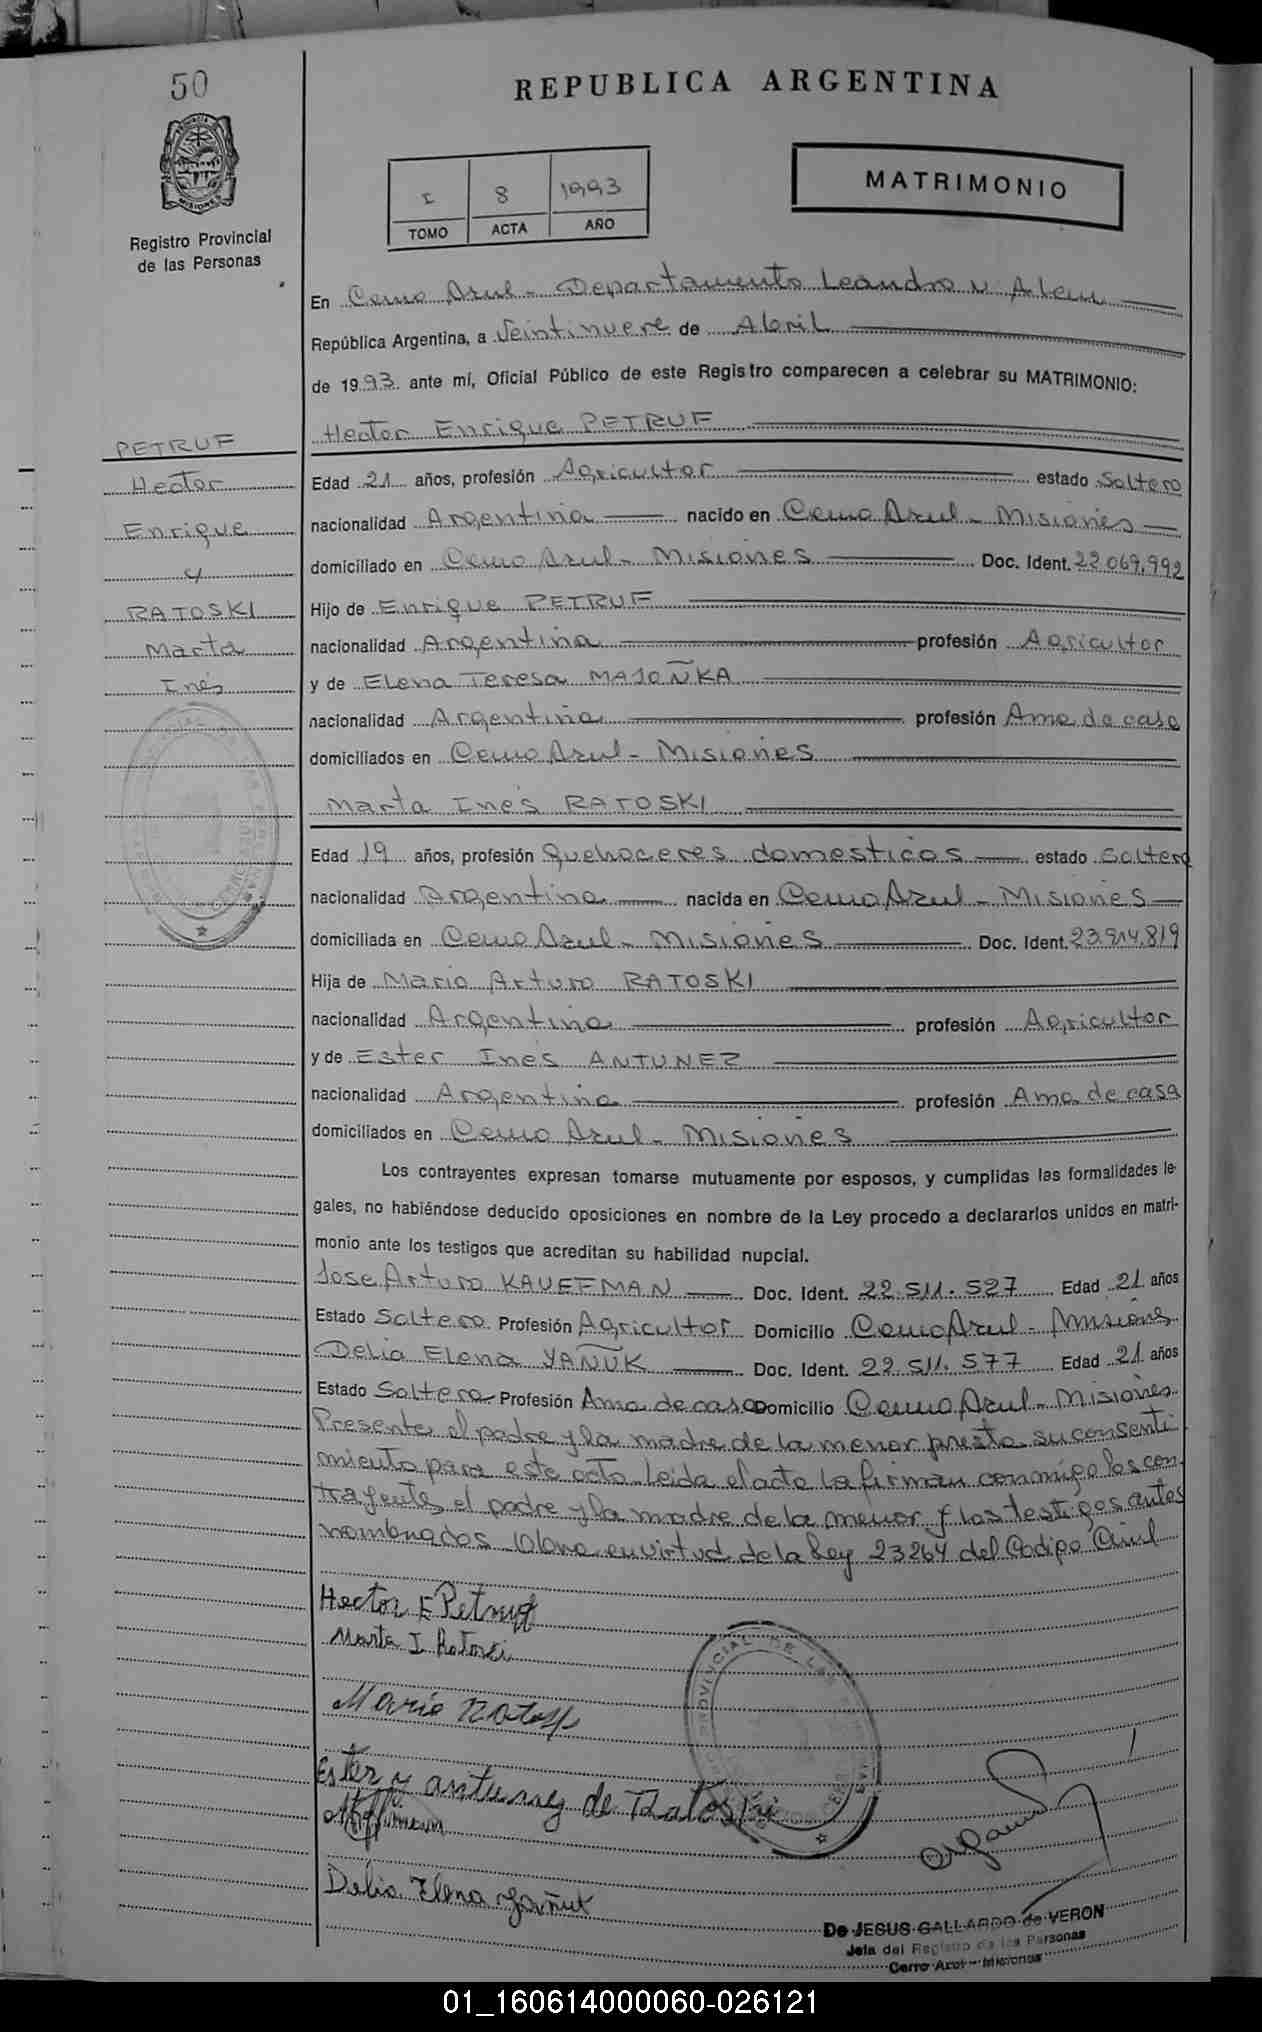 50
REPUBLICA ARGENTINA
MATRIMONIO
I 8 1993
TOMO ACTA AÑO
PROVINCIA
MISIONES
Registro Provincial
de las Personas
En Cerro Azul - Departamento Leandro N. Alem
República Argentina, a Veintinueve de Abril
de 1993 ante mí, Oficial Público de este Registro comparecen a celebrar su MATRIMONIO:
Hector Enrique PETRUF
PETRUF
Hector
Enrique
y
RATOSKI
Marta
Inés
Edad 21 años, profesión Agricultor estado Soltero
nacionalidad Argentina nacido en Cerro Azul - Misiones
domiciliado en Cerro Azul - Misiones Doc. Ident. 22.069.992
Hijo de Enrique PETRUF
nacionalidad Argentina profesión Agricultor
y de Elena Teresa MAJOÑKA
nacionalidad Argentina profesión Ama de casa
domiciliados en Cerro Azul - Misiones
Marta Inés RATOSKI
Edad 19 años, profesión Quehaceres domesticos estado Soltera
nacionalidad Argentina nacida en Cerro Azul - Misiones
domiciliada en Cerro Azul - Misiones Doc. Ident. 23.914.819
Hija de Mario Arturo RATOSKI
nacionalidad Argentina profesión Agricultor
y de Ester Inés ANTUNEZ
nacionalidad Argentina profesión Ama de casa
domiciliados en Cerro Azul - Misiones
Los contrayentes expresan tomarse mutuamente por esposos, y cumplidas las formalidades le-
gales, no habiéndose deducido oposiciones en nombre de la Ley procedo a declararlos unidos en matri-
monio ante los testigos que acreditan su habilidad nupcial.
Jose Arturo KAUFFMAN Doc. Ident. 22.511.527 Edad 21 años
Estado Soltero Profesión Agricultor Domicilio Cerro Azul - Misiones
Delia Elena YAÑUK Doc. Ident. 22.511.577 Edad 21 años
Estado Soltera Profesión Ama de casa Domicilio Cerro Azul - Misiones
Presentes el padre y la madre de la menor presta su consenti-
miento para este acto. Leida el acta la firman conmigo los con-
trayentes, el padre y la madre de la menor y los testigos antes
nombrados en virtud de la Ley 23264 del Codigo Civil
Hector E Petruf
Marta I Ratoski
Mario Ratoski
Ester y antunez de Ratoski
Delia Elena Yañuk
De JESUS GALLARDO de VERON
Jefa del Registro de las Personas
Cerro Azul - Misiones
01_160614000060-026121